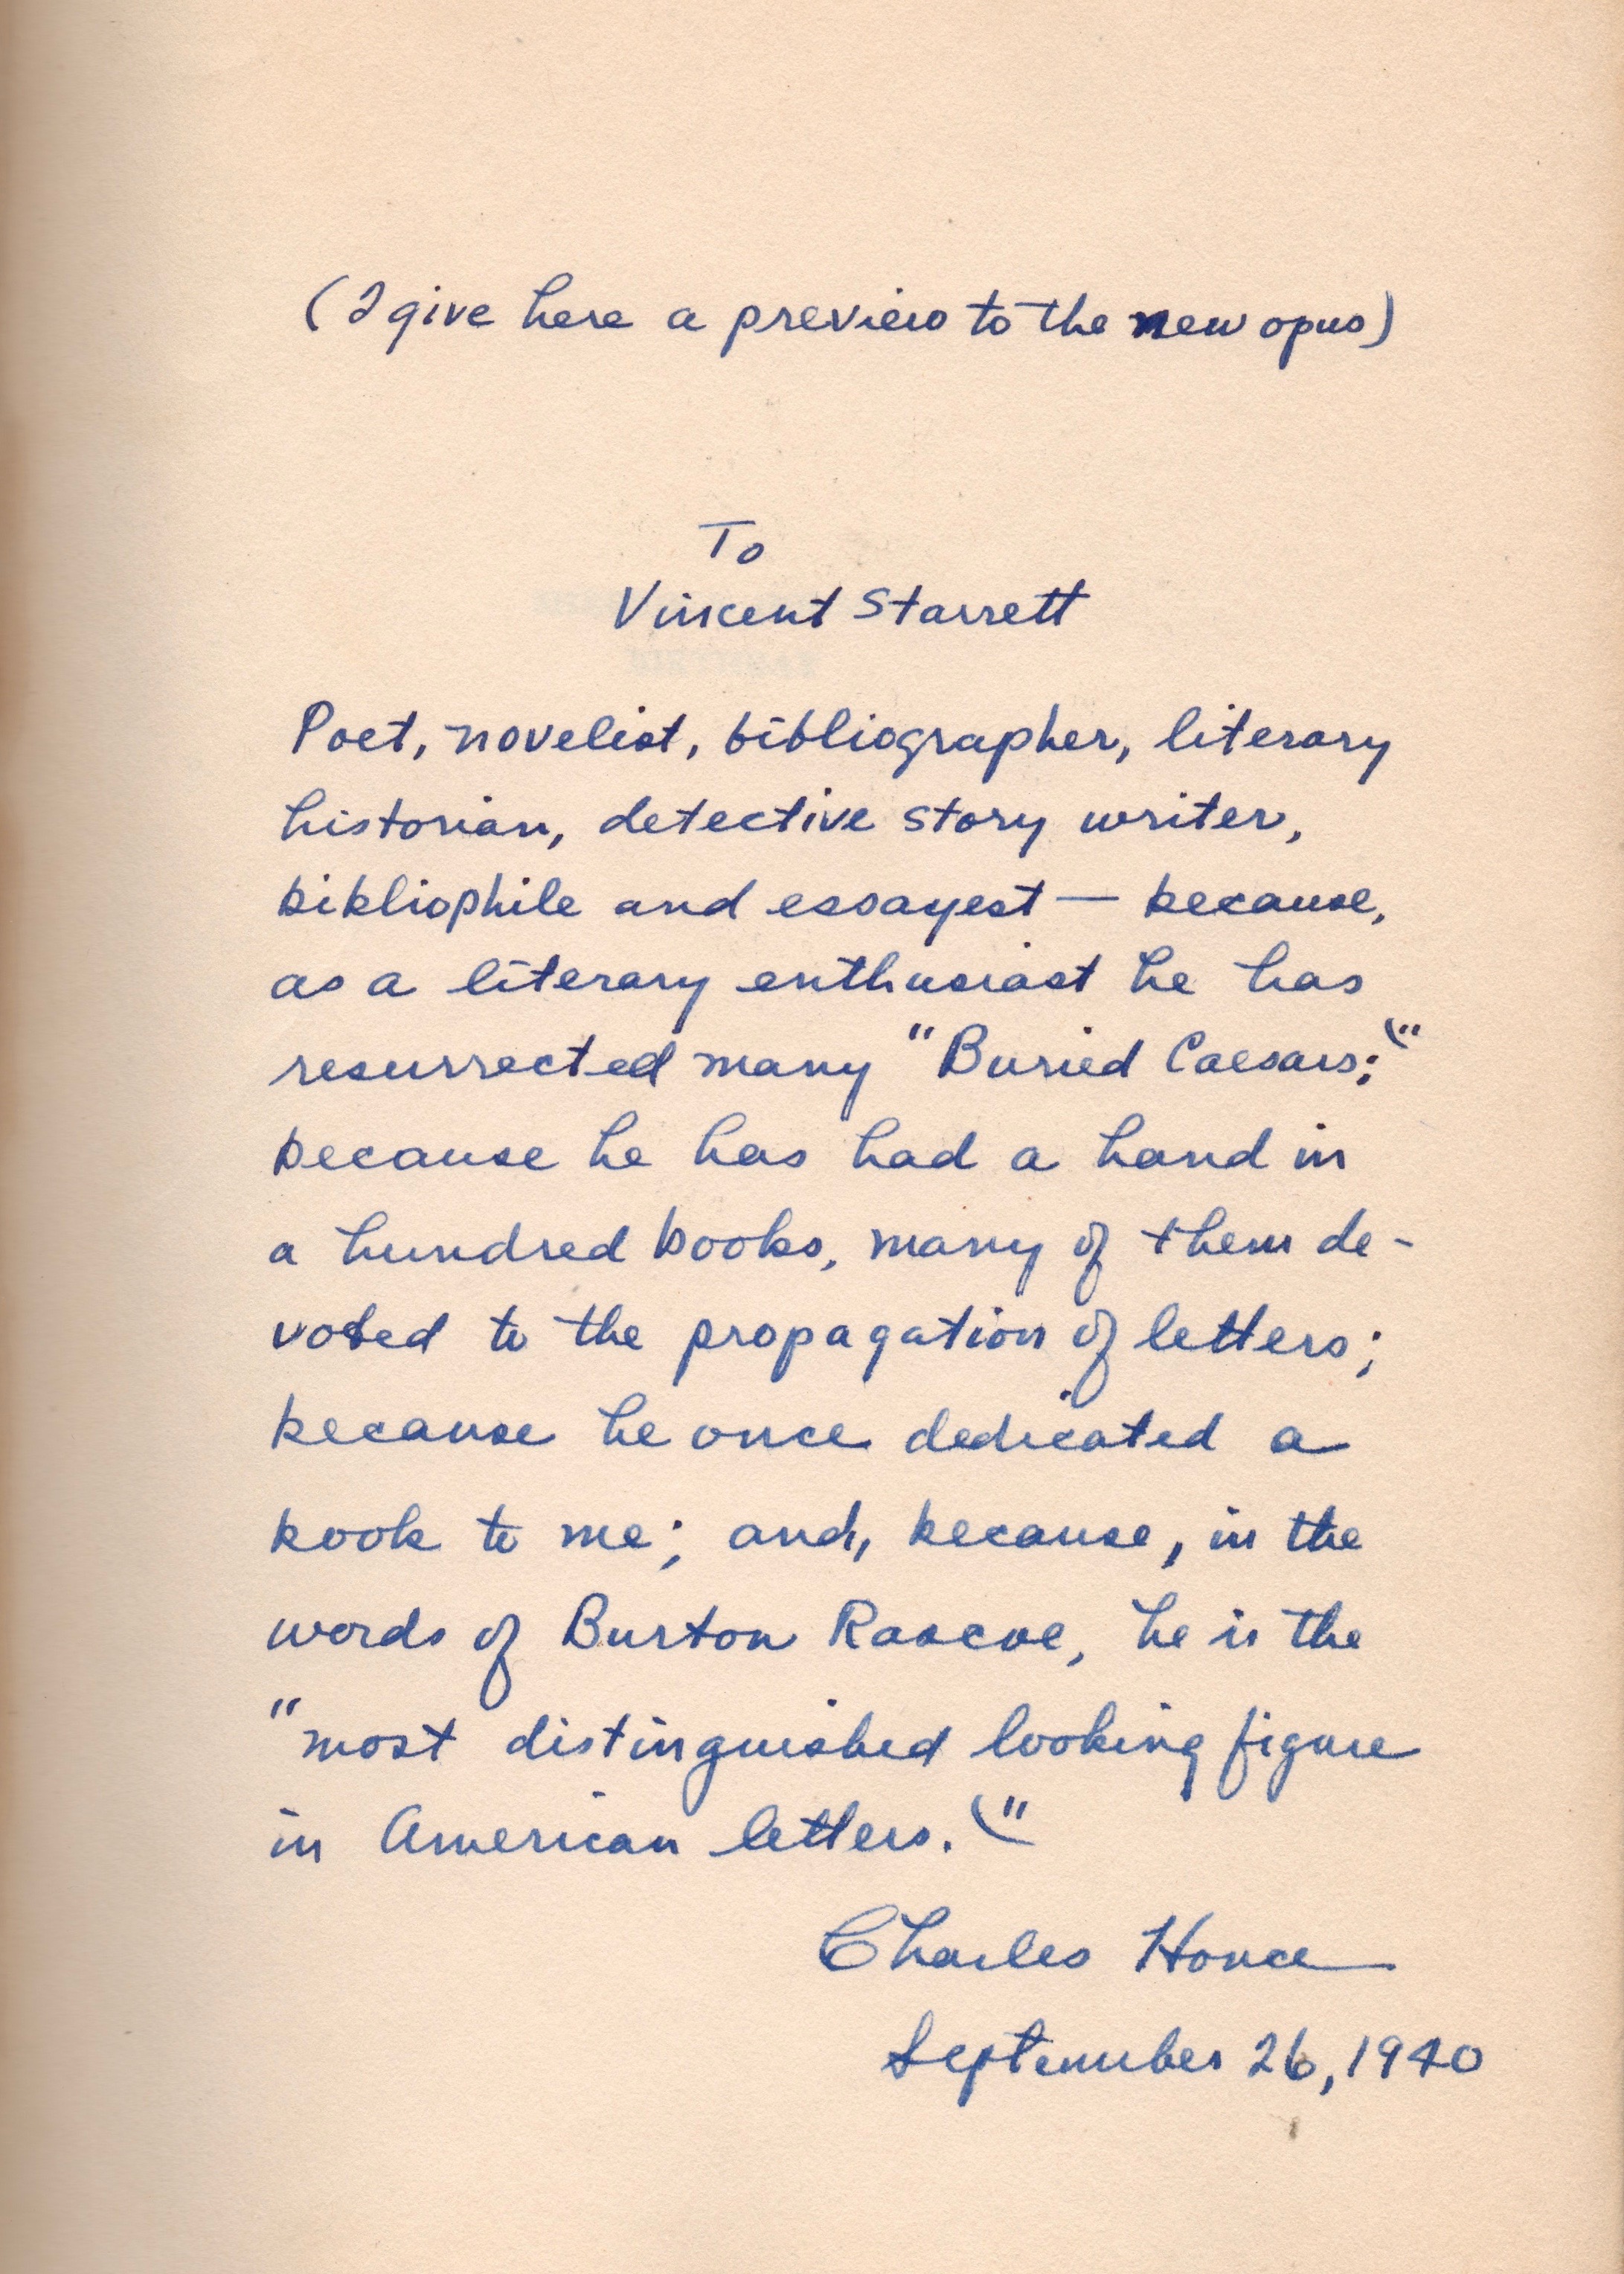 (I give here a preview to the new opus)
To
Vincent Starrett
Poet, novelist, bibliographer, literary
historian, detective story writer,
bibliophile and essayest — because,
as a literary enthusiast he has
resurrected many "Buried Caesars;"
because he has had a hand in
a hundred books, many of them de-
voted to the propagation of letters;
because he once dedicated a
book to me; and, because, in the
words of Burton Rascoe, he is the
"most distinguished looking figure
in American letters."
Charles Honce
September 26, 1940